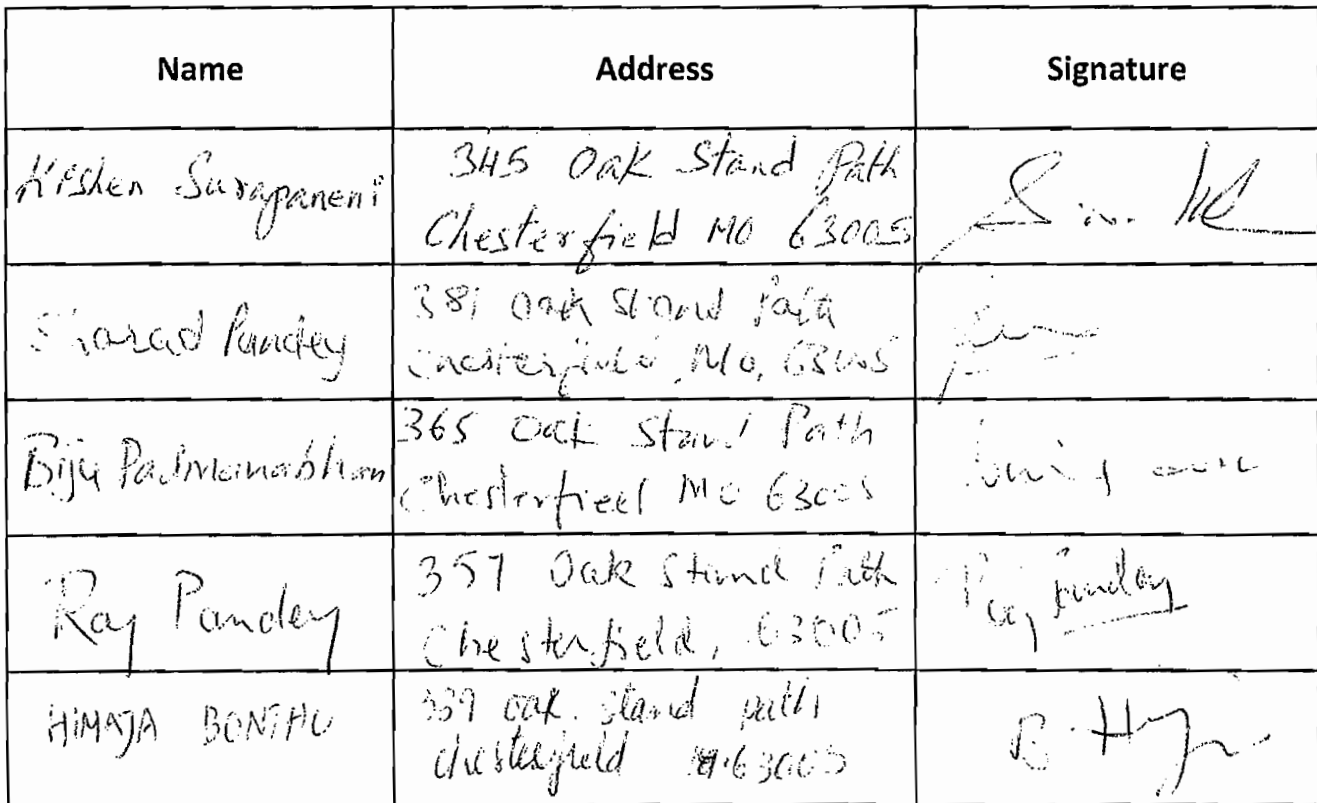 Name Address Signature
Kishen Surapaneni
345 Oak Stand Path
Chesterfield MO 63005
Sharad Pandey
381 Oak Stand Path
Chesterfield, MO, 63005
Biju Padmanabhan
365 Oak Stand Path
Chesterfieel MO 63005
Raj Pandey
357 Oak Stand Path
Chesterfield, 63005
Raj Pandey
HIMAJA BONTHU
339 oak stand path
chesterfield 63005